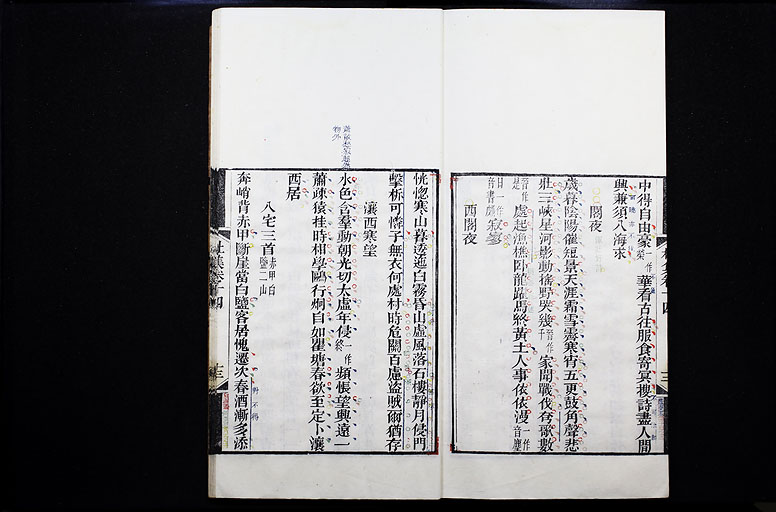 中得自由豪一作榮華看古往服食寄冥搜詩盡人間
興兼須入海求
閣夜
歲暮陰陽催短景天涯霜雪霽寒宵五更鼓角聲悲
壯三峽星河影動搖野哭幾千家聞戰伐夷歌數
處起漁樵臥龍躍馬終黃土人事依依漫
音書一作寂寥
西閣夜
恍惚寒山暮逶迤白霧昏山虛風落石樓靜月侵門
擊柝可憐子無衣何處村時危關百慮盜賊爾猶存
瀼西寒望
水色含羣動朝光切太虛年侵一作終頻悵望興遠一
蕭疎猿挂時相學鷗行炯自如瞿塘春欲至定卜瀼
西居
入宅三首赤甲白鹽二山
奔峭背赤甲斷崖當白鹽客居愧遷次春酒漸多添
杜集卷十四